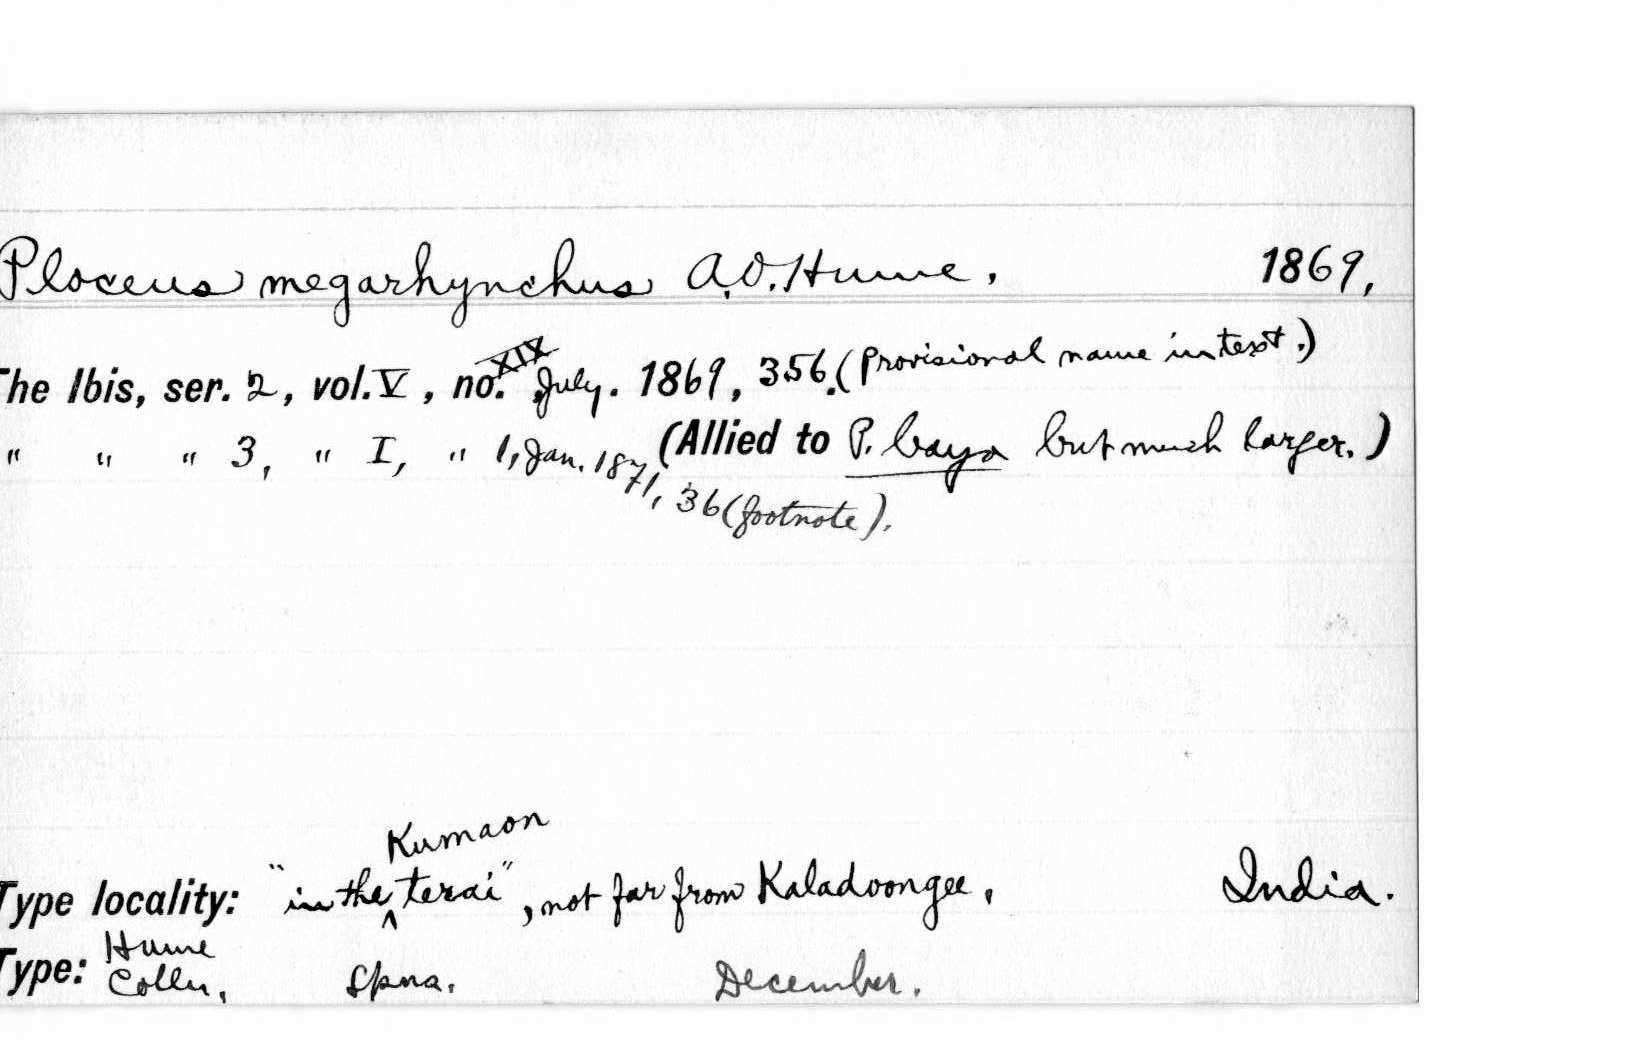 Ploceus megarhynchus A.O. Hume. 1869,
The Ibis, ser. 2, vol. V, no. XIX, July. 1869, 356. (Provisional name in text.)
" " " 3, " I, " 1, Jan. 1871, 36 (footnote). (Allied to P. baya but much larger.)
Type locality: "in the Kumaon terai", not far from Kaladoongee, India.
Type: Hume Colln, Spns. December.